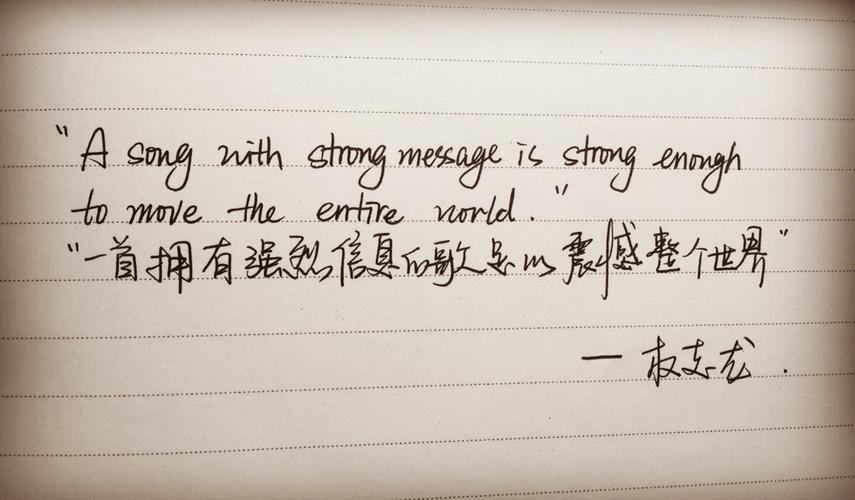 "A song with strong message is strong enough
to move the entire world."
"一首拥有强烈信息的歌足以震撼整个世界"
— 权志龙.